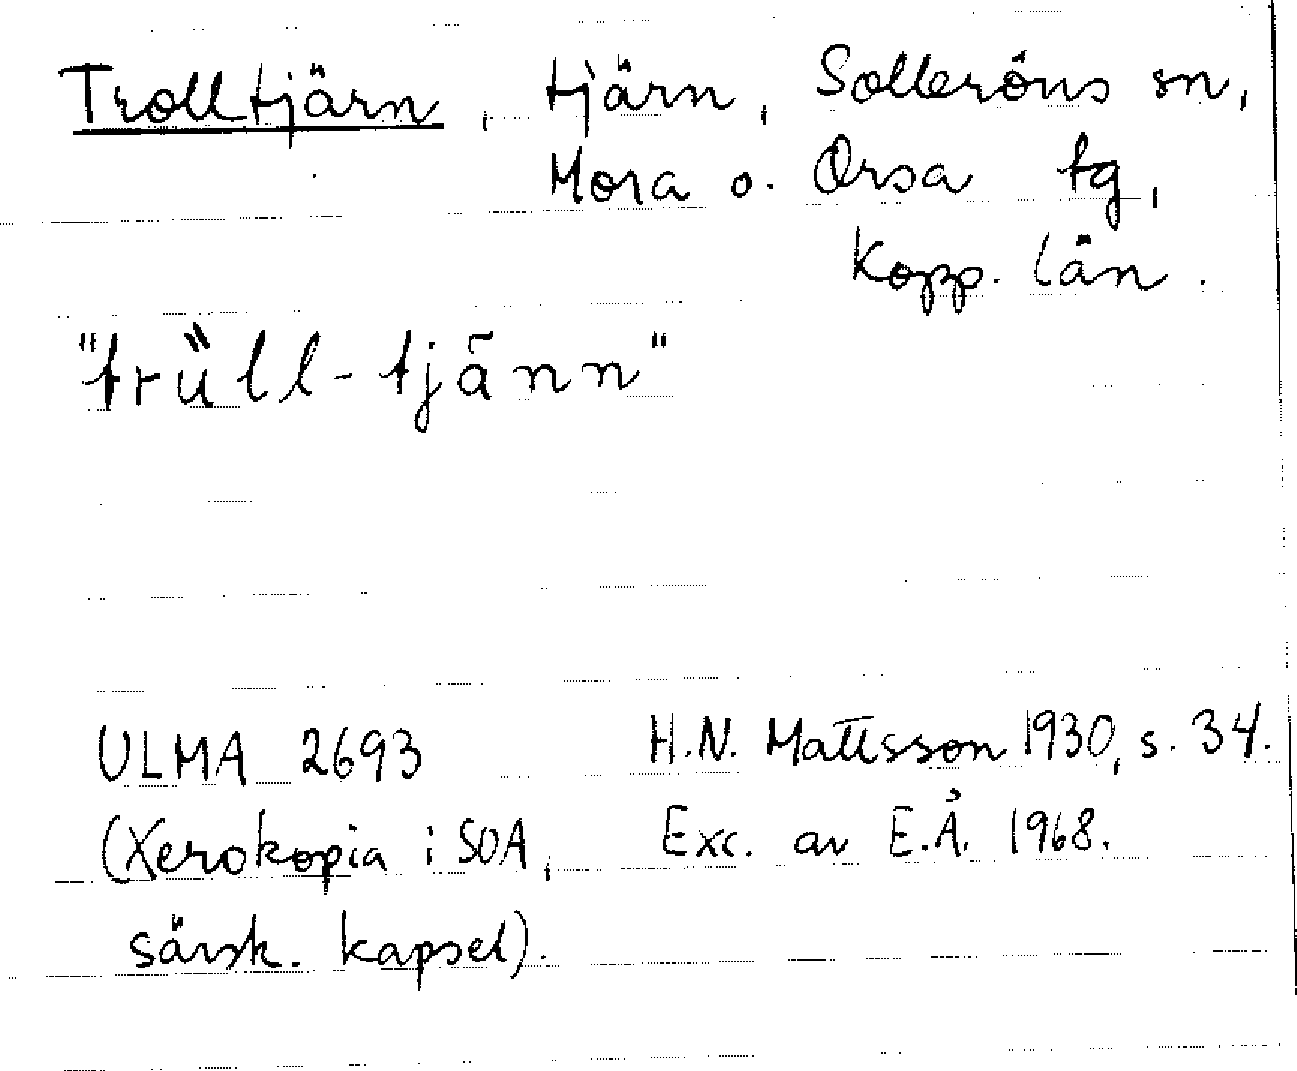 Trolltjärn, tjärn, Solleröns sn,
Mora o. Orsa tg,
Kopp. län.
"trüll-tjänn"
ULMA 2693 H.N. Mattsson 1930, s. 34.
(Xerokopia i SOA, Exc. av E.Å. 1968.
särsk. kapsel).